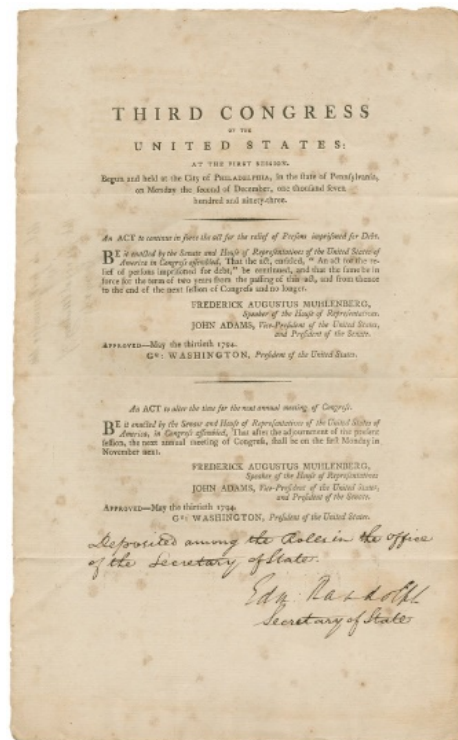 THIRD CONGRESS
OF THE
UNITED STATES:
AT THE FIRST SESSION,
Begun and held at the City of PHILADELPHIA, in the state of Pennsylvania,
on Monday the second of December, one thousand seven
hundred and ninety-three.
An ACT to continue in force the act for the relief of Persons imprisoned for Debt.
BE it enacted by the Senate and House of Representatives of the United States of
America in Congress assembled, That the act, entitled, "An act for the re-
lief of persons imprisoned for debt," be continued, and that the same be in
force for the term of two years from the passing of this act, and from thence
to the end of the next session of Congress and no longer.
FREDERICK AUGUSTUS MUHLENBERG,
Speaker of the House of Representatives.
JOHN ADAMS, Vice-President of the United States,
and President of the Senate.
APPROVED—May the thirtieth 1794.
Go: WASHINGTON, President of the United States.
An ACT to alter the time for the next annual meeting of Congress.
BE it enacted by the Senate and House of Representatives of the United States of
America, in Congress assembled, That after the adjournment of the present
session, the next annual meeting of Congress, shall be on the first Monday in
November next.
FREDERICK AUGUSTUS MUHLENBERG,
Speaker of the House of Representatives
JOHN ADAMS, Vice-President of the United States,
and President of the Senate.
APPROVED—May the thirtieth 1794.
Go: WASHINGTON, President of the United States.
Deposited among the Rolls in the office
of the Secretary of State.
Edm: Randolph
Secretary of State